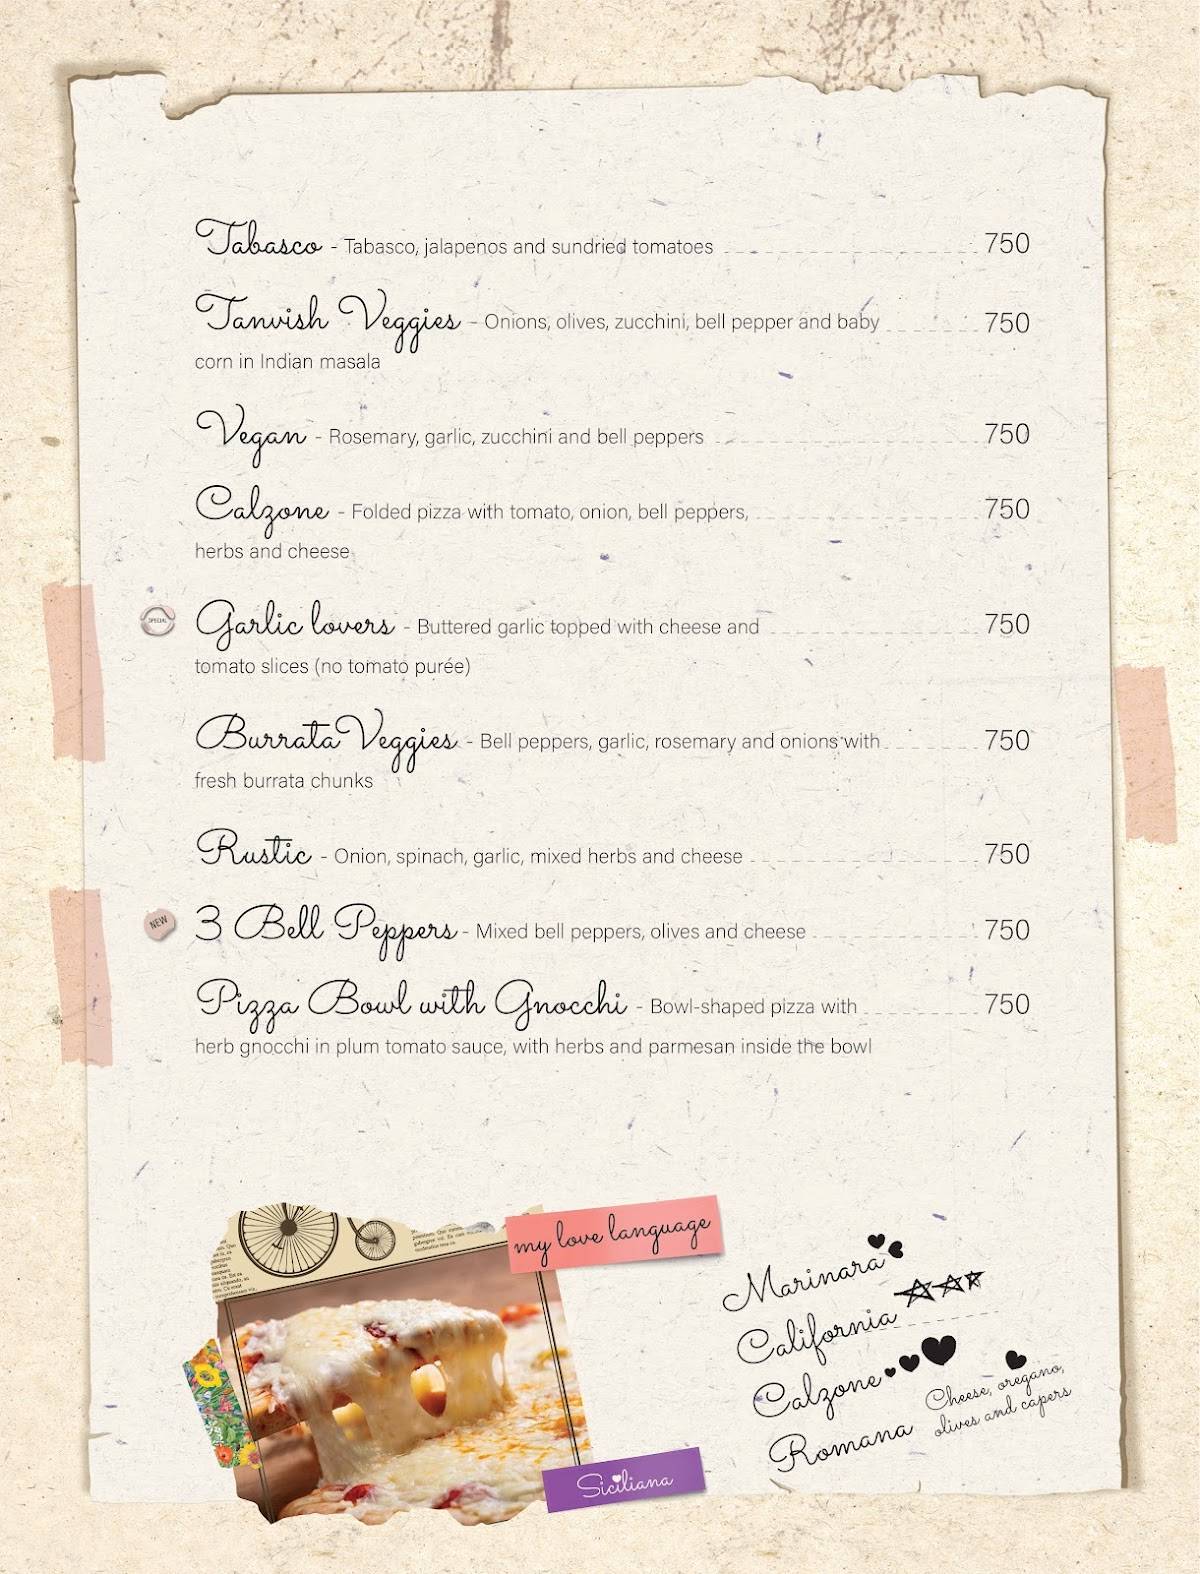 Tabasco - Tabasco, jalapenos and sundried tomatoes 750
Tanvish Veggies - Onions, olives, zucchini, bell pepper and baby 750
corn in Indian masala
Vegan - Rosemary, garlic, zucchini and bell peppers 750
Calzone - Folded pizza with tomato, onion, bell peppers, 750
herbs and cheese
SPECIAL
Garlic lovers - Buttered garlic topped with cheese and 750
tomato slices (no tomato purée)
Burrata Veggies - Bell peppers, garlic, rosemary and onions with 750
fresh burrata chunks
Rustic - Onion, spinach, garlic, mixed herbs and cheese 750
NEW
3 Bell Peppers - Mixed bell peppers, olives and cheese 750
Pizza Bowl with Gnocchi - Bowl-shaped pizza with 750
herb gnocchi in plum tomato sauce, with herbs and parmesan inside the bowl
my love language
Marinara
California
Calzone
Romana
Cheese, oregano,
olives and capers
Siciliana